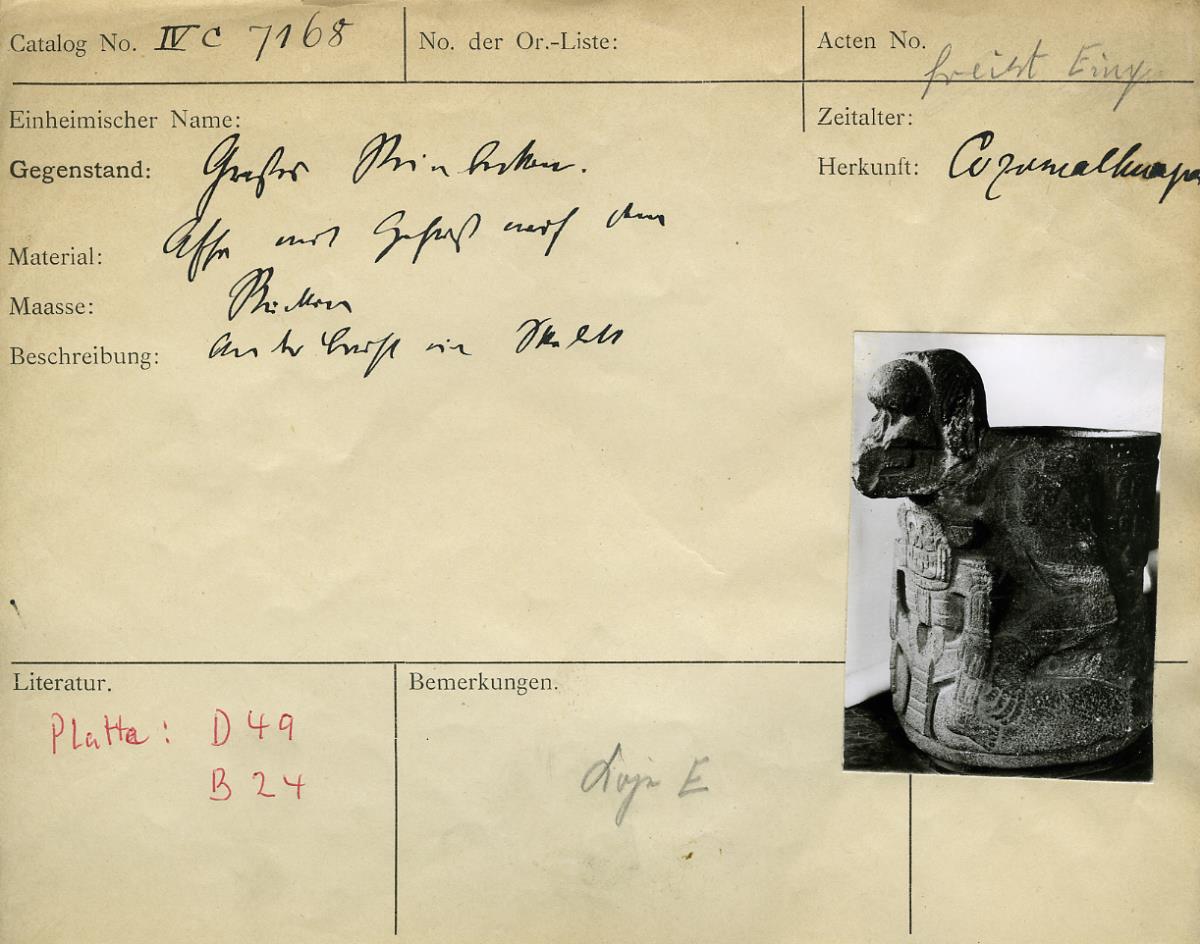 Catalog No. IV C 7168
No. der Or.-Liste:
Acten No.
Einheimischer Name:
Zeitalter:
Gegenstand: Großes Steinbecken.
Herkunft:
Affe mit Gefäß auf dem
Material:
Maasse: Rücken
Beschreibung: An der Brust ein
Literatur.
Platte: D 49
B 24
Bemerkungen.
E